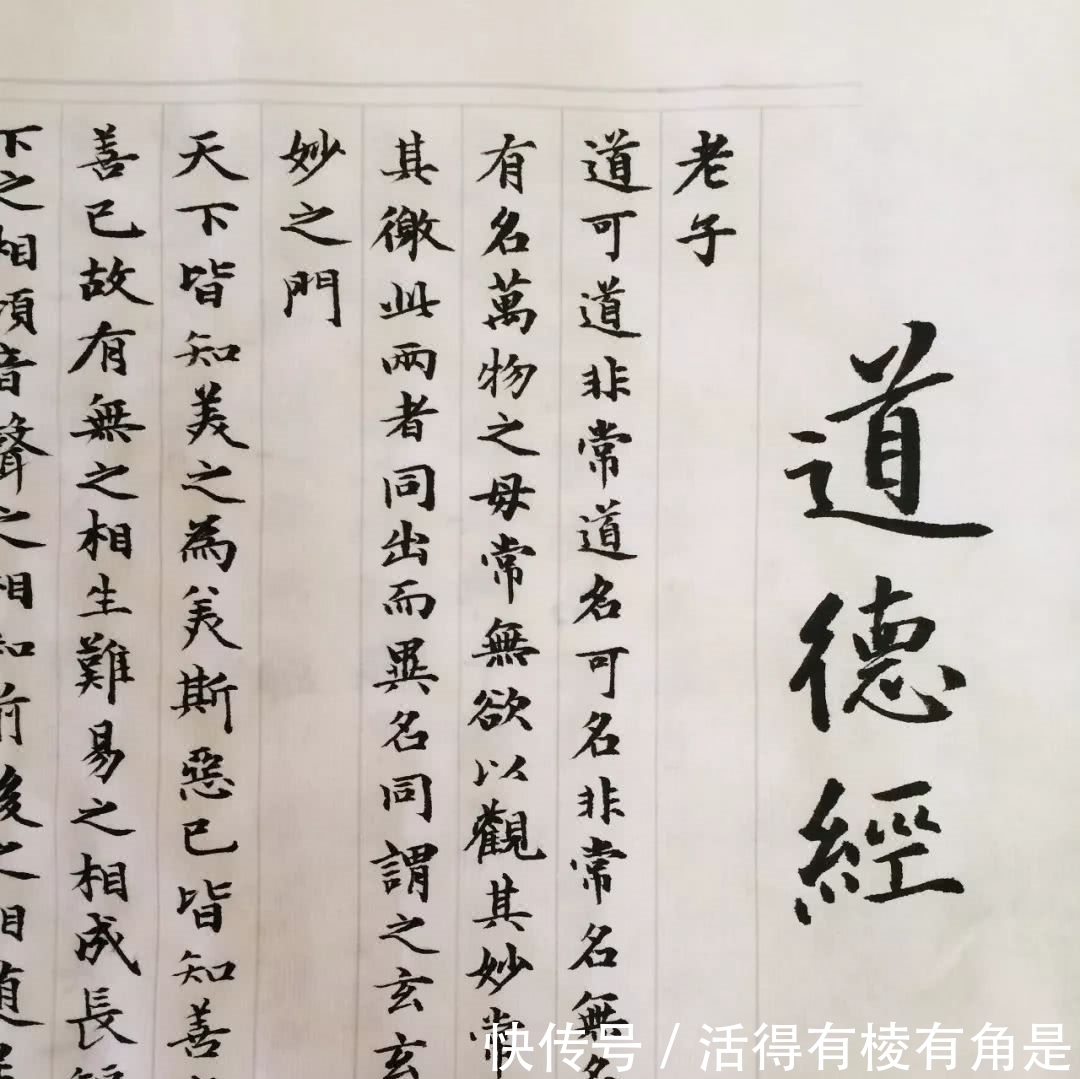 道德經
老子
道可道非常道名可名非常名無名
有名萬物之母常無欲以觀其妙常
其徼此兩者同出而異名同謂之玄玄
妙之門
天下皆知美之為美斯惡已皆知善
善已故有無之相生難易之相成長
下之相傾音聲之相和前後之相隨
快传号/活得有棱有角是